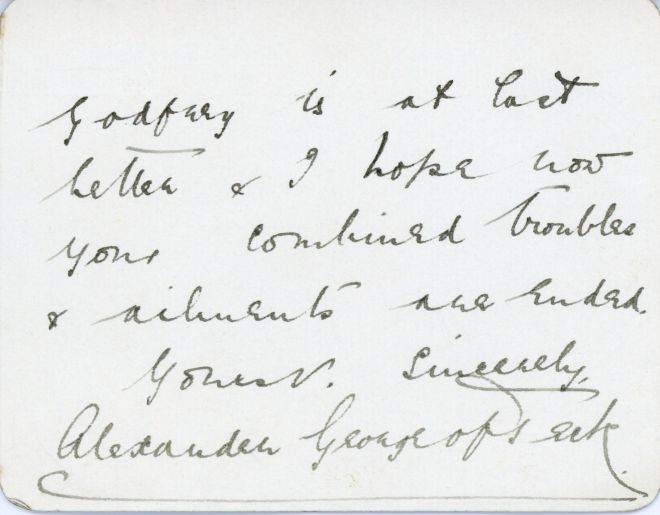 Godfrey is at last
better & I hope now
your combined troubles
& ailments are ended.
Yours v. sincerely,
Alexander George of Teck.